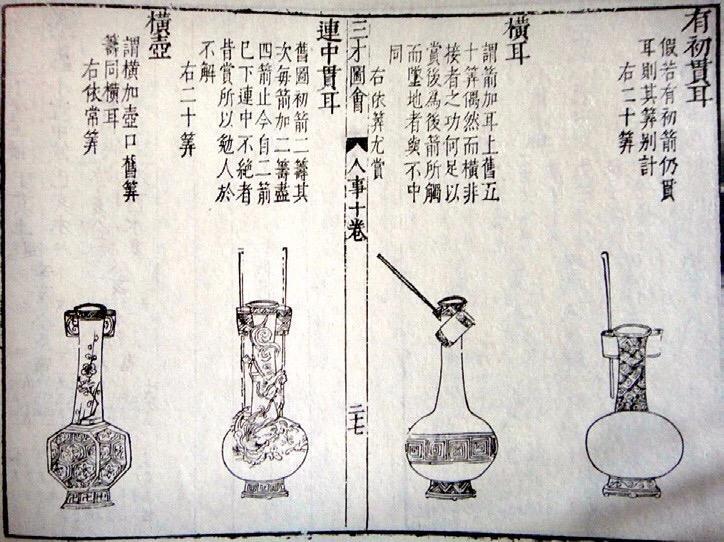 有初貫耳
假若有初箭仍貫
耳則其筭别計
右二十筭
橫耳
謂箭加耳上舊五
十筭偶然而橫非
接者之功何足以
賞後為後箭所觸
而墜地者與不中
同
右依筭尤賞
三才圖會
人事十卷
二七
連中貫耳
舊圖初箭二籌其
次每箭加二籌盡
四箭止今自二箭
已下連中不絶者
皆賞所以勉人於
不解
右二十筭
橫壺
謂橫加壺口舊筭
籌同橫耳
右依常筭